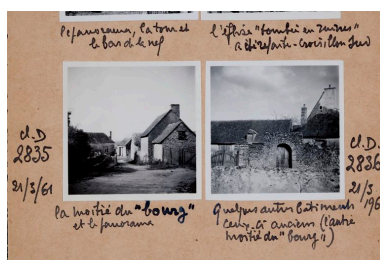 le panorama, la tour et
le bas de la nef
l'église "tombée en ruines"
a été refaite - Croisillon Sud
cl. D
2835
21/3/61
la moitié du "bourg"
et le panorama
cl. D
2836
21/3
196
Quelques autres bâtiments
ceux-ci anciens (l'autre
moitié du "bourg")